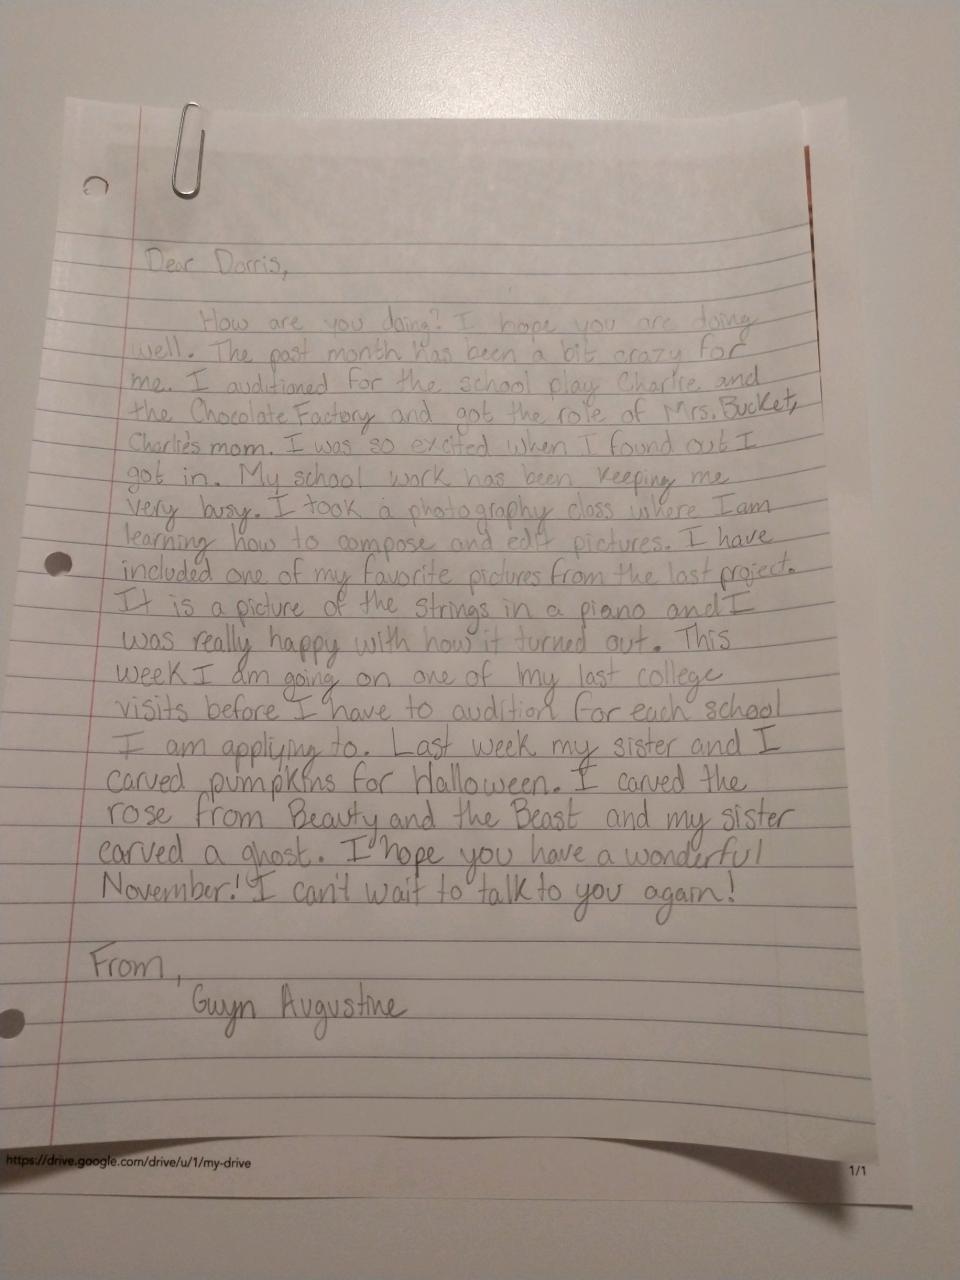 Dear Dorris,
How are you doing? I hope you are doing
well. The past month has been a bit crazy for
me. I auditioned for the school play Charlie and
the Chocolate Factory and got the role of Mrs. Bucket,
Charlie's mom. I was so excited when I found out I
got in. My school work has been keeping me
very busy. I took a photography class where I am
learning how to compose and edit pictures. I have
included one of my favorite pictures from the last project.
It is a picture of the strings in a piano and I
was really happy with how it turned out. This
week I am going on one of my last college
visits before I have to audition for each school
I am applying to. Last week my sister and I
carved pumpkins for Halloween. I carved the
rose from Beauty and the Beast and my sister
carved a ghost. I hope you have a wonderful
November! I can't wait to talk to you again!
From,
Gwyn Augustine
https://drive.google.com/drive/u/1/my-drive
1/1